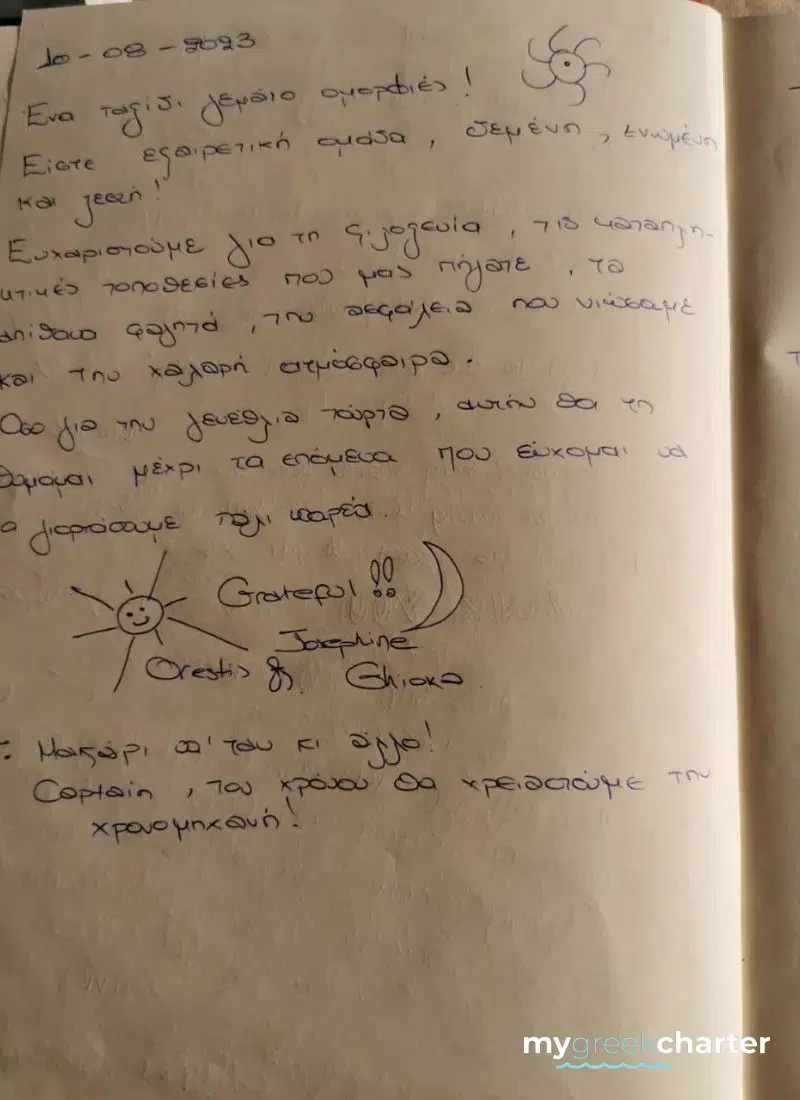 10-08-2023
Ένα ταξίδι γεμάτο ομορφιές!
Είστε εξαιρετική ομάδα, δεμένη, ενωμένη
και ζεστή!
Ευχαριστούμε για τη φιλοξενία, τις καταπλη-
κτικές τοποθεσίες που μας πήγατε, τα
απίθανα φαγητά, την ασφάλεια που νιώσαμε
και την χαλαρή ατμόσφαιρα.
Όσο για την γενέθλια τούρτα, αυτήν θα τη
θυμάμαι μέχρι τα επόμενα που εύχομαι να
α γιορτάσουμε πάλι παρέα.
Grateful!!
Josephine
Orestis &
Ghioka
: Μακάρι απ' του κι άλλο!
Captain, του χρόνου θα χρειαστούμε την
χρονομηχανή!
mygreekcharter